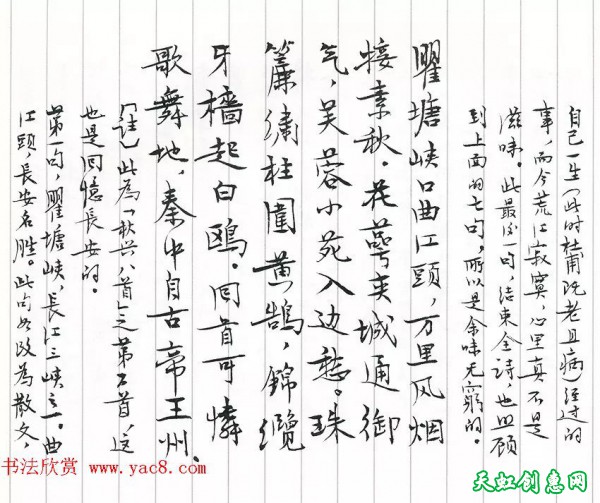 自己一生(此时杜甫既老且病)经过的
事,而今荒江寂寞,心里真不是
滋味。此最后一句,结束全诗,也回顾
到上面的七句,所以是余味无穷的。
瞿塘峡口曲江頭,万里风烟
接素秋。花萼夹城通御
气,芙蓉小苑入边愁。珠
簾繡柱圍黄鵠,錦纜
牙檣起白鷗。回首可憐
歌舞地,秦中自古帝王州。
[註]此為「秋兴八首」之第六首,这
也是回憶長安的。
第一句,瞿塘峡,長江三峡之一。曲
江頭,長安名胜。此句如改為散文,
书法欣赏 www.yac8.com
天虹创意网